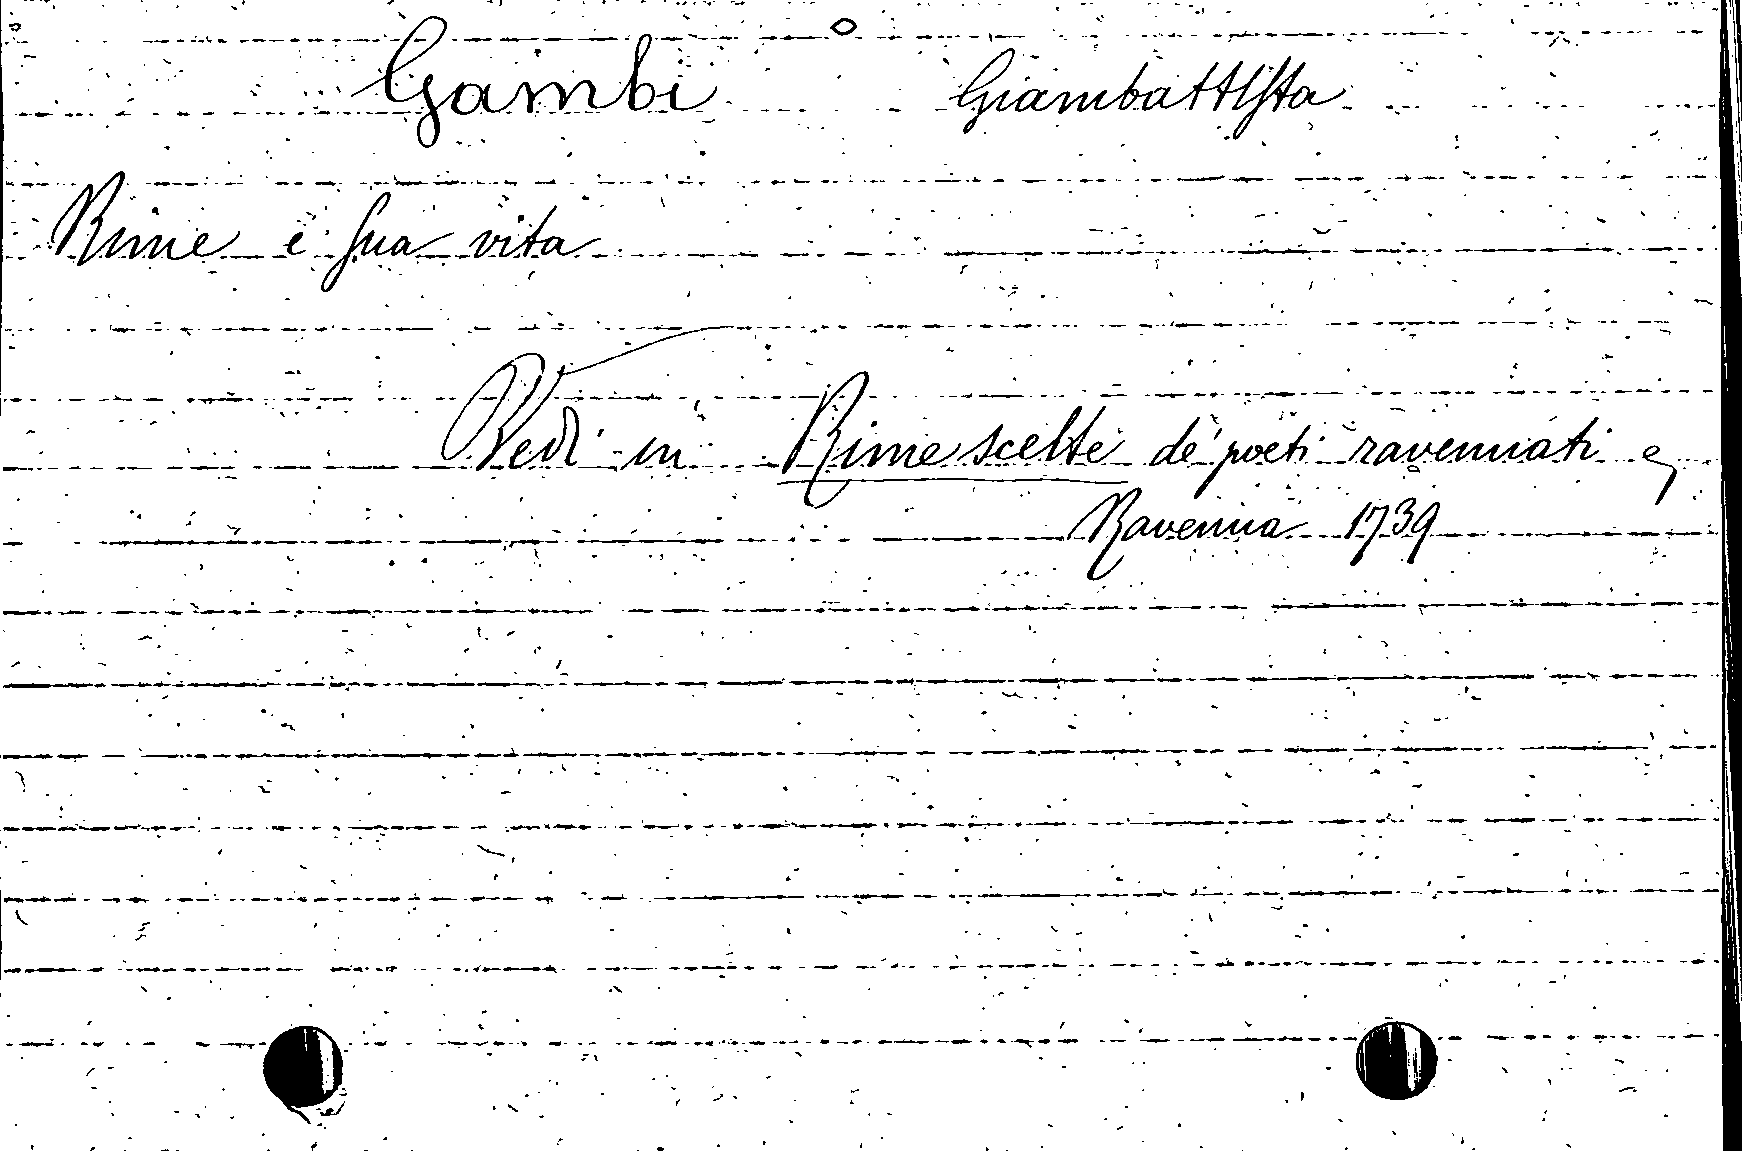 Gambi Giambattista
Rime e sua vita
Vedi in Rime scelte de' poeti ravennati
Ravenna 1739